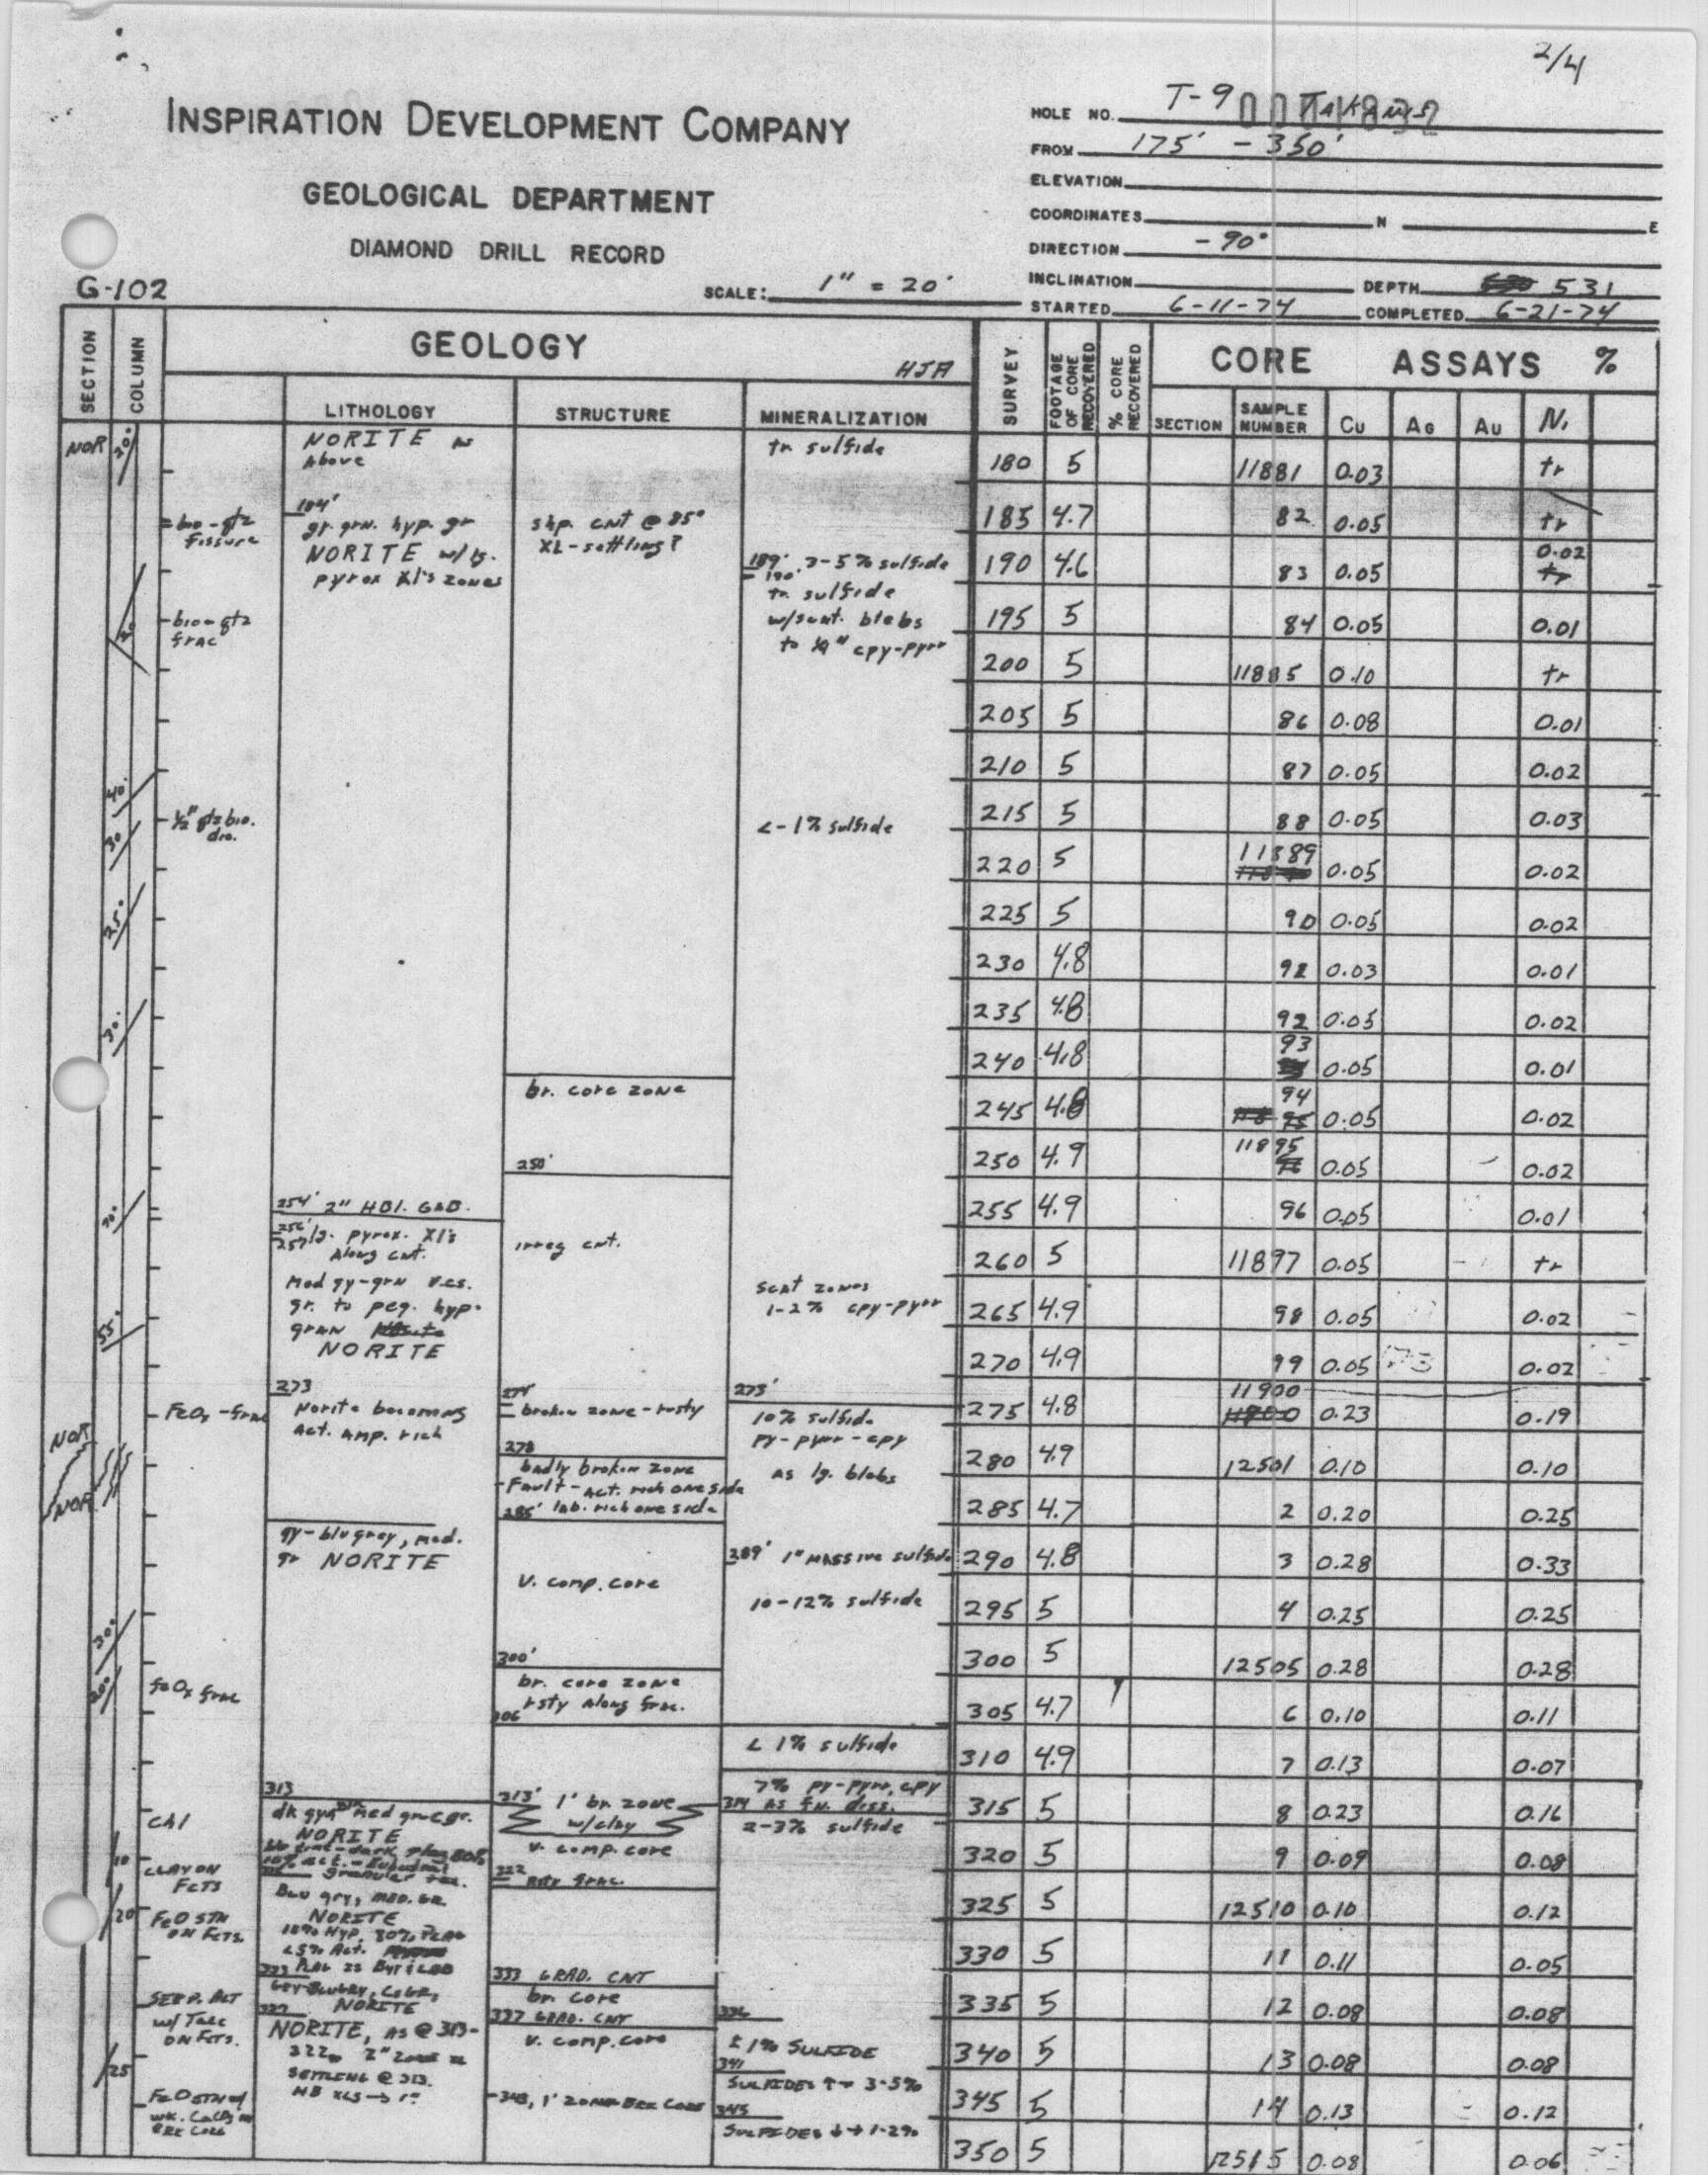 2/4
INSPIRATION DEVELOPMENT COMPANY
GEOLOGICAL DEPARTMENT
DIAMOND DRILL RECORD
G-102
SCALE: 1" = 20'
HOLE NO. T-9
FROM 175' - 350'
ELEVATION
COORDINATES N E
DIRECTION -90°
INCLINATION DEPTH 531
STARTED 6-11-74 COMPLETED 6-21-74
SECTION COLUMN GEOLOGY HJA SURVEY FOOTAGE OF CORE RECOVERED % CORE RECOVERED CORE ASSAYS %
LITHOLOGY STRUCTURE MINERALIZATION SECTION SAMPLE NUMBER Cu AG AU Ni
NOR 20°
NORITE as
above
tr. sulfide
180 5 11881 0.03 tr
184'
= bio-qtz
fissure
gr. grn. hyp. gr
NORITE w/ lg.
pyrox Xl's zones
shp. cnt @ 85°
XL-settling?
185 4.7 82 0.05 tr
189'
190' 3-5% sulfide
tr. sulfide
w/scat. blebs
to 1/4" cpy-pyrr
190 4.6 83 0.05 0.02 tr
bio-qtz
frac
195 5 84 0.05 0.01
200 5 11885 0.10 tr
205 5 86 0.08 0.01
210 5 87 0.05 0.02
40°
1/2" qtz bio.
dio.
30
<-1% sulfide
215 5 88 0.05 0.03
220 5 11889 0.05 0.02
25°
225 5 90 0.05 0.02
230 4.8 91 0.03 0.01
30°
235 4.8 92 0.05 0.02
240 4.8 93 0.05 0.01
br. core zone
245 4.8 94 0.05 0.02
250'
250 4.9 11895 0.05 0.02
254' 2" HBl. GAB.
255 4.9 96 0.05 0.01
256'
257' lg. pyrox. Xl's
along cnt.
irreg cnt.
260 5 11897 0.05 tr
Med gy-grn v.cs.
gr. to peg. hyp.
gran
NORITE
scat zones
1-2% cpy-pyrr
55°
265 4.9 98 0.05 0.02
270 4.9 99 0.05 0.02
273
FeOx-frac
Norite becoming
Act. Amp. rich
274'
broken zone-rusty
273'
10% sulfide
py-pyrr-cpy
as lg. blebs
275 4.8 11900 0.23 0.19
NOR
NOR
278
badly broken zone
-Fault-Act. rich one side
285' lab. rich one side
280 4.9 12501 0.10 0.10
285 4.7 2 0.20 0.25
gy-blu grey, med.
gr NORITE
v. comp. core
289' 1" massive sulfide
10-12% sulfide
290 4.8 3 0.28 0.33
295 5 4 0.25 0.25
30°
300'
300 5 12505 0.28 0.28
feOx frac
br. core zone
rsty along frac.
306
305 4.7 6 0.10 0.11
< 1% sulfide
310 4.9 7 0.13 0.07
313
Chl
dk gyn med gr-c gr.
NORITE
313' 1' br. zone
w/clay
v. comp. core
7% py-pyrr, cpy
314 as fn. diss.
2-3% sulfide
315 5 8 0.23 0.16
10
CLAY ON
FCTS
322 rsty frac.
320 5 9 0.09 0.08
20
FeO STN
ON FCTS.
Blu gry, med. gr.
NORITE
10% Hyp, 80% PLAG
<5% Act.
325 5 12510 0.10 0.12
330 5 11 0.11 0.05
333 GRAD. CNT
br. core
337 GRAD. CNT
v. comp. core
335 5 12 0.08 0.08
SERP. ALT
w/ Talc
ON FCTS.
NORITE
NORITE, AS @ 313-
322
SETTLING @ 313.
HB XLS → 1"
336
± 1% SULFIDE
341
340 5 13 0.08 0.08
25
SULFIDES ↑→ 3-5%
345
SULFIDES ↓→ 1-2%
FeO STN
345 5 14 0.13 0.12
350 5 12515 0.08 0.06